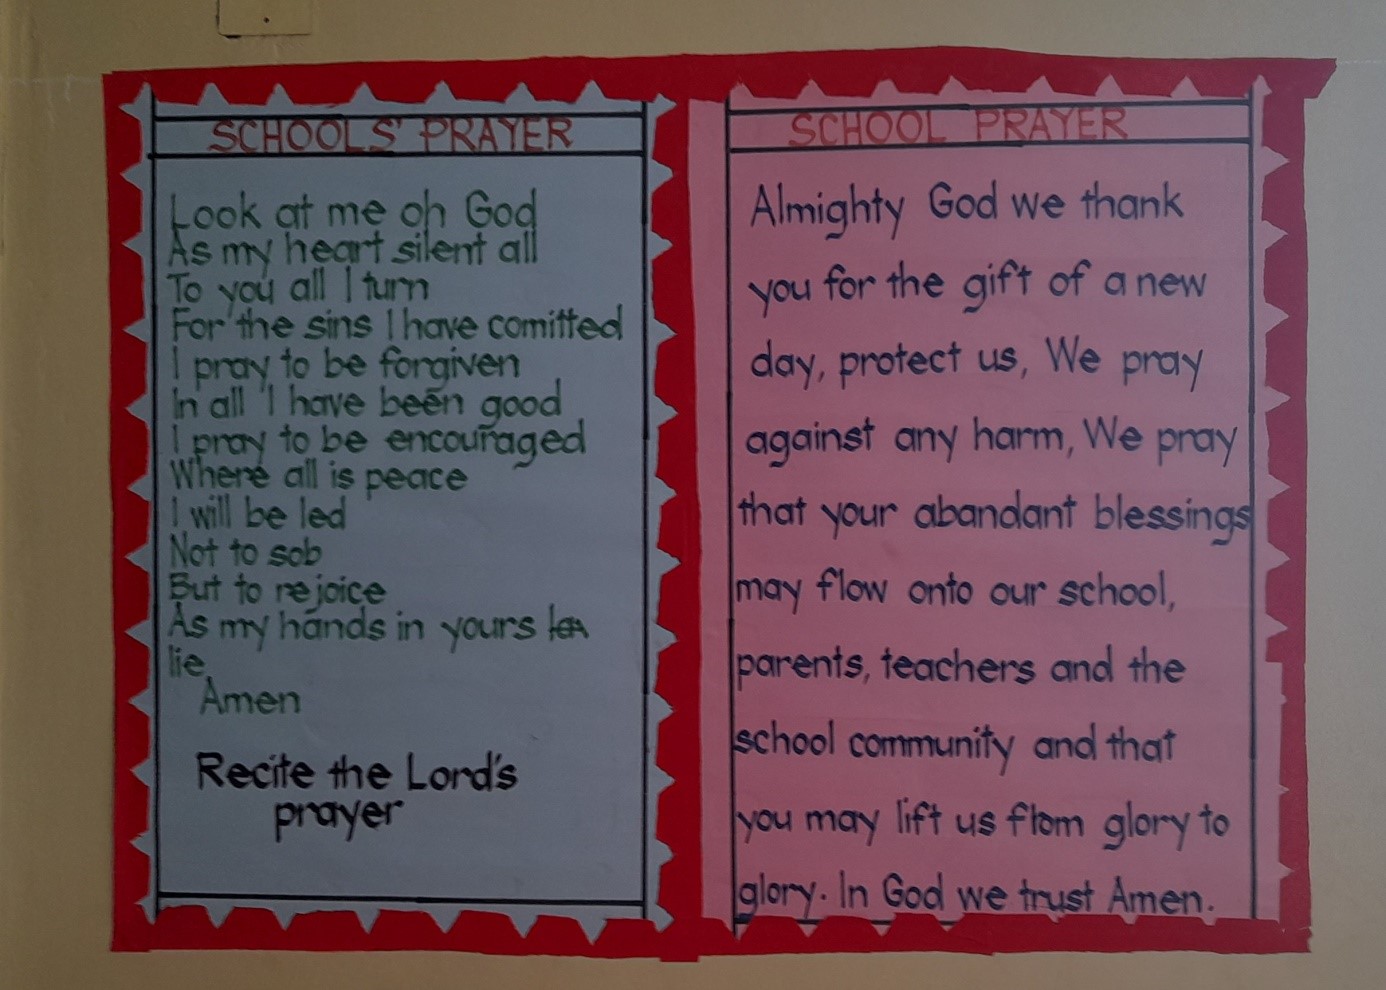 SCHOOLS' PRAYER
Look at me oh God
As my heart silent all
To you all I turn
For the sins I have comitted
I pray to be forgiven
In all I have been good
I pray to be encouraged
Where all is peace
I will be led
Not to sob
But to rejoice
As my hands in yours
lie
Amen
Recite the Lord's
prayer
SCHOOL PRAYER
Almighty God we thank
you for the gift of a new
day, protect us, We pray
against any harm, We pray
that your abandant blessings
may flow onto our school,
parents, teachers and the
school community and that
you may lift us from glory to
glory. In God we trust Amen.